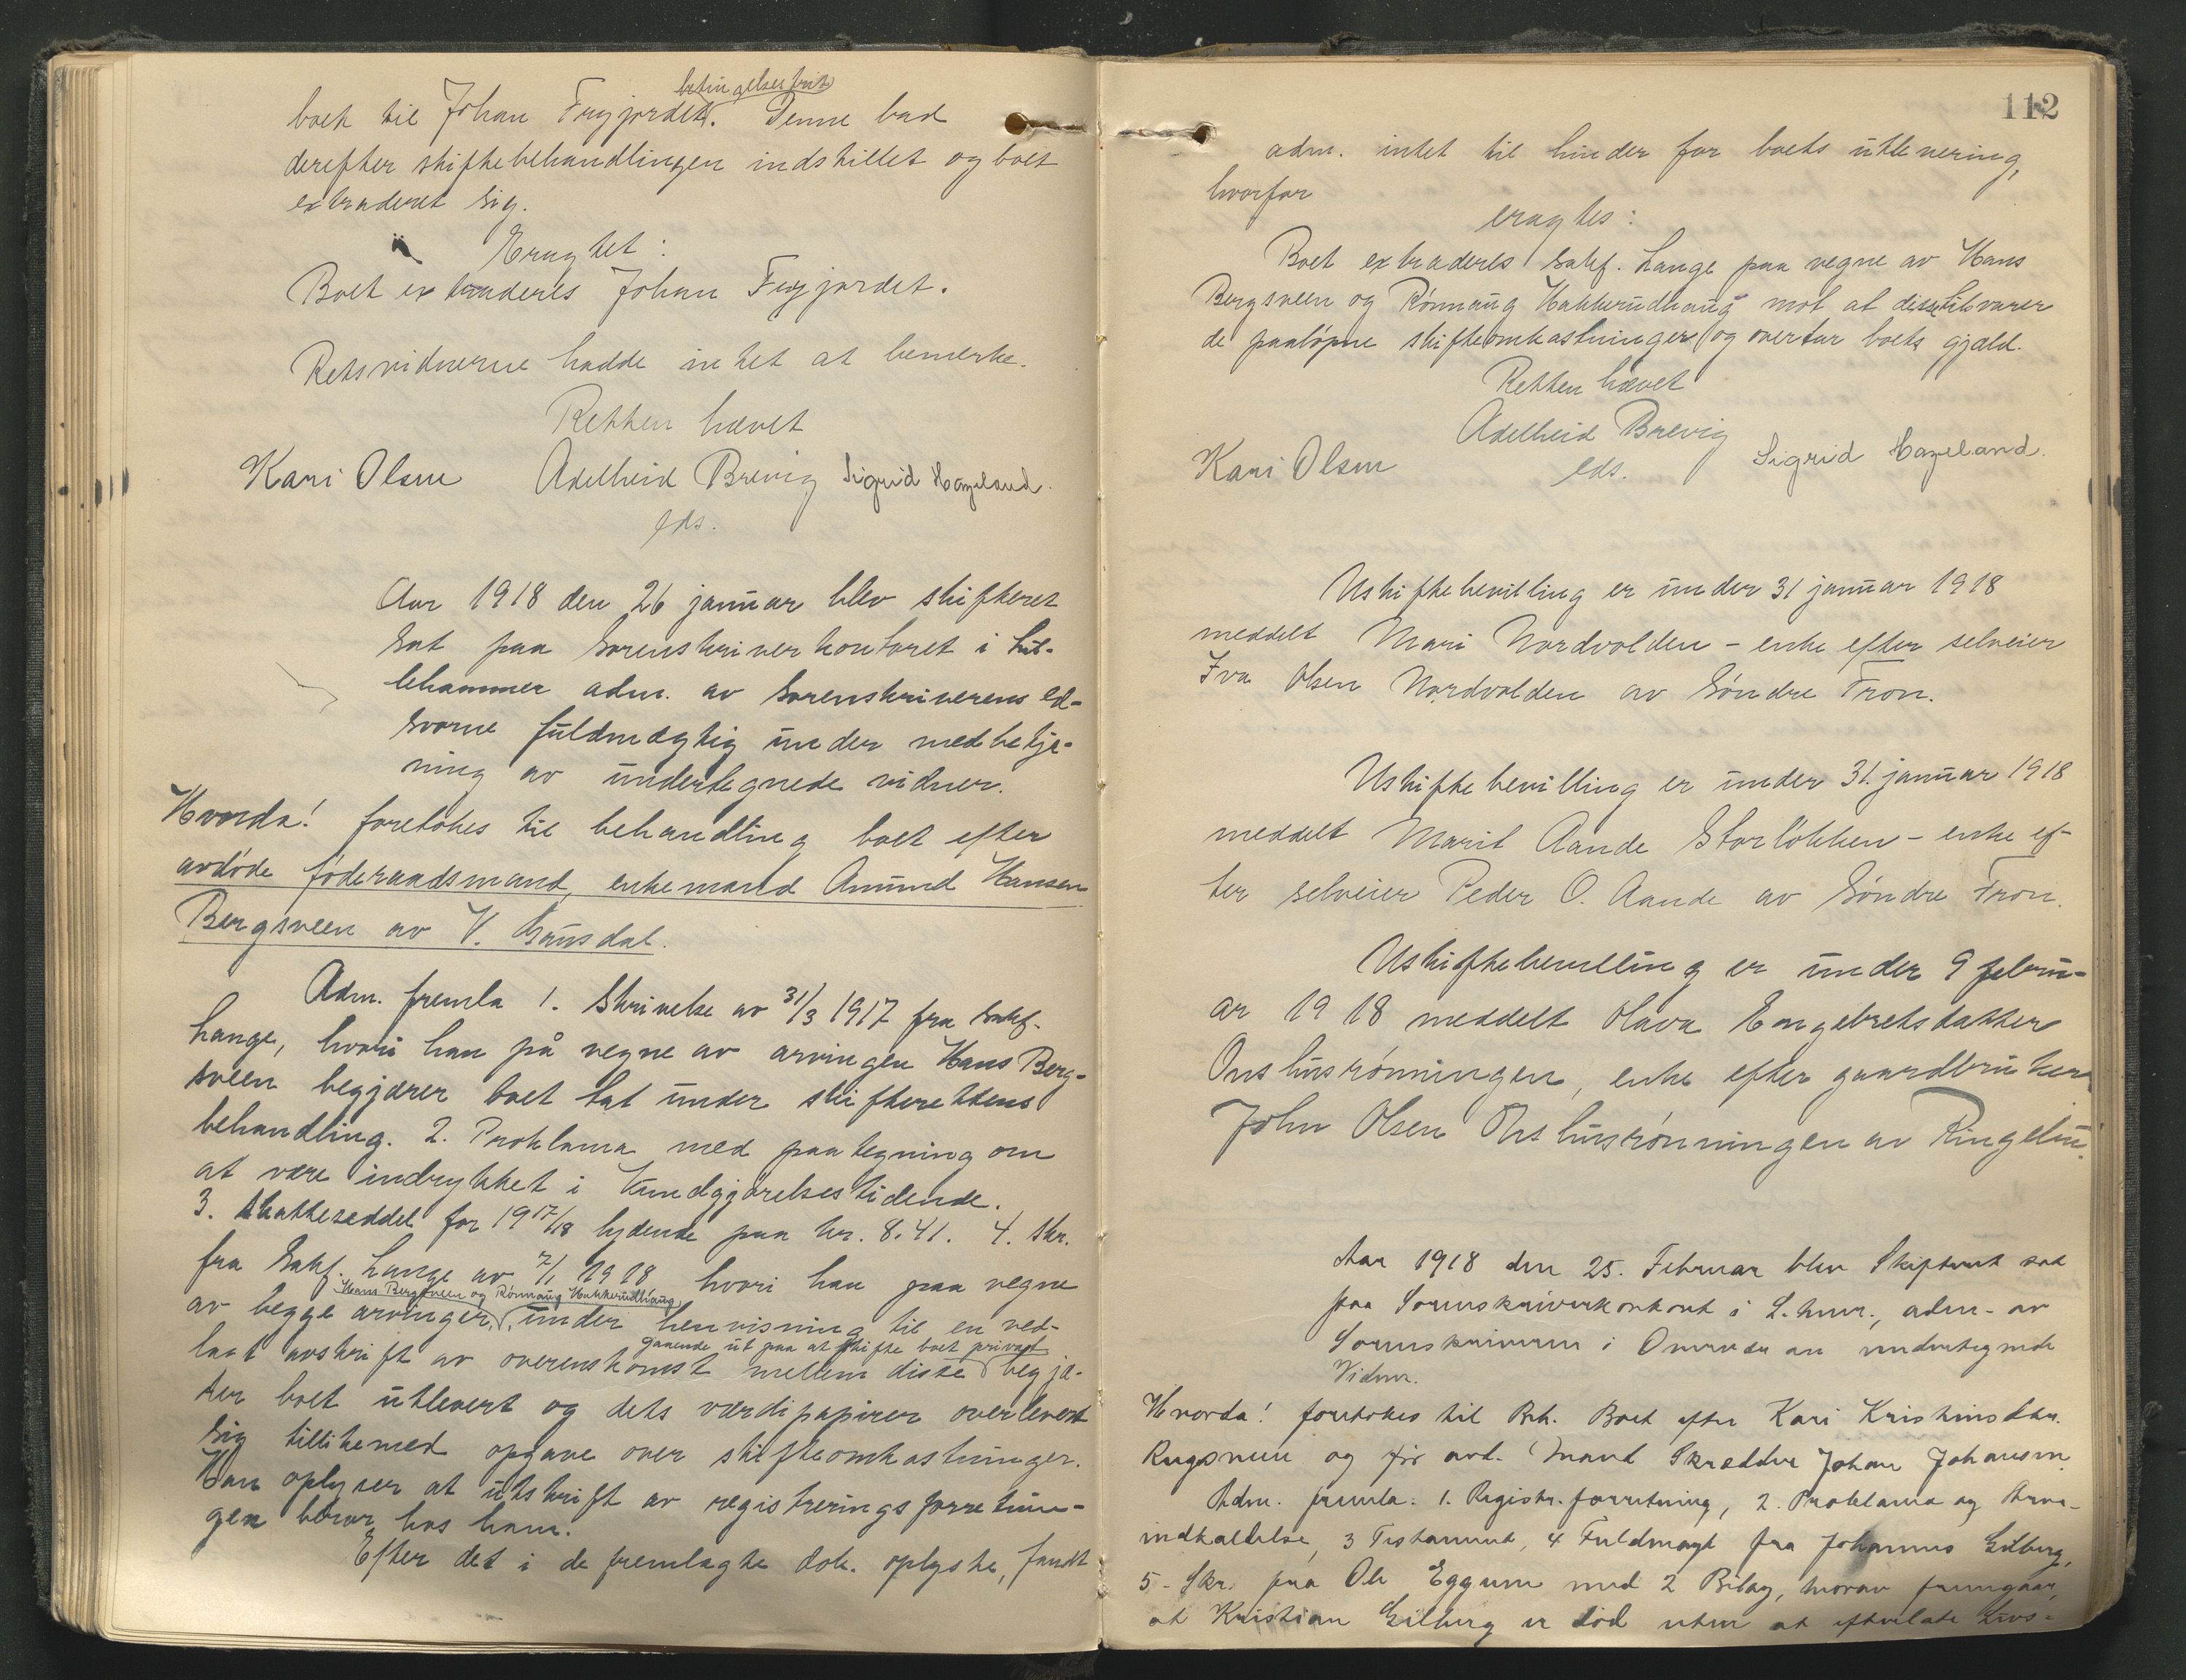 betingelsesfrit
boet til Johan Frygjordet. Denne bad
derefter skiftebehandlingen indstillet og boet
extraderet sig.
Eragtet:
Boet extraderes Johan Frygjordet.
Retsvidnerne hadde intet at bemerke.
Retten hævet
Kari Olsen Adelheid Brevig Sigrid Hageland.
eds.
Aar 1918 den 26 januar blev skifteret
sat paa sorenskriverkontoret i Lil-
lehammer adm. av sorenskriverens ed-
svorne fuldmægtig under medbetje-
ning av undertegnede vidner.
Hvorda! foretokes til behandling boet efter
avdøde føderaadsmand, enkemand Amund Hansen
Bergsveen av V. Gausdal.
Adm. fremla 1. Skrivelse av 31/3 1917 fra sakf.
Lange, hvori han på vegne av arvingen Hans Berg-
sveen begjærer boet tat under skifterettens
behandling. 2. Proklama med paategning om
at være indrykket i Kundgjørelsestidende.
3. Skatteseddel for 1917/18 lydende paa kr. 8.41. 4. Skr.
fra Sakf. Lange av 7/1 1918 hvori han paa vegne
Hans Bergsveen og Rønnaug Hakkerudhaug
av begge arvinger, under henvisning til en ved-
gaaende ut paa at skifte boet privat
lagt avskrift av overenskomst mellem disse begjæ-
rer boet utlevert og dets værdipapirer overlevert
sig tillikemed opgave over skifteomkostninger.
Han oplyser at utskrift av registreringsforretnin-
gen beror hos ham.
Efter det i de fremlagte dok. oplyste, fandt
112
adm. intet til hinder for boets utlevering,
hvorfor
eragtes:
Boet extraderes sakf. Lange paa vegne av Hans
Bergsveen og Rønnaug Hakkerudhaug mot at disse tilsvarer
de paaløpne skifteomkostninger og overtar boets gjæld.
Retten hævet
Kari Olsen Adelheid Brevig Sigrid Hageland.
eds.
Uskiftebevilling er under 31 januar 1918
meddelt Mari Nordvolden - enke efter selveier
Iva Olsen Nordvolden av Søndre Fron.
Uskiftebevilling er under 31. januar 1918
meddelt Marit Aande Storløkken - enke ef-
ter selveier Peder O. Aande av Søndre Fron.
Uskiftebevilling er under 9 febru-
ar 1918 meddelt Olava Engebretsdatter
Onshusrønningen, enke efter gaardbruker
John Olsen Onshusrønningen av Ringebu.
Aar 1918 den 25. Februar blev Skifteret sat
paa Sorenskriverkontoret i L.hmr., adm. av
Sorenskriveren i Overvær av undertegnede
Vidner.
Hvorda! foretokes til Beh. Boet efter Kari Kristinsdtr.
Rugsveen og før avd. Mand Skrædder Johan Johansen.
Adm. fremla: 1. Registr. forretning, 2. Proklama og Arve-
indkaldelse, 3 Testament, 4 Fuldmagt fra Johannes Gilberg,
5. Skr. fra Ole Eggum med 2 Bilag, hvorav fremgaar,
at Kristian Gilberg er død uten at efterlate Livs-